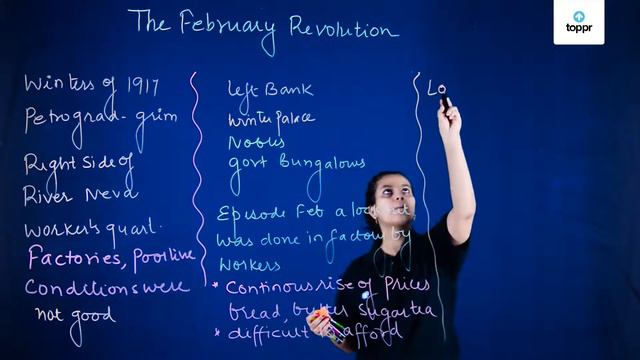 The February Revolution
toppr
Winters of 1917
Petrograd - grim
Right Side of
River Neva
Worker's quart.
Factories, poor live
Conditions were
not good
Left Bank
Winter palace
Nobles
govt Bungalows
Episode Feb a lock
was done in factory by
Workers
* Continous rise of prices
bread, butter sugar tea
* difficult afford
Lo